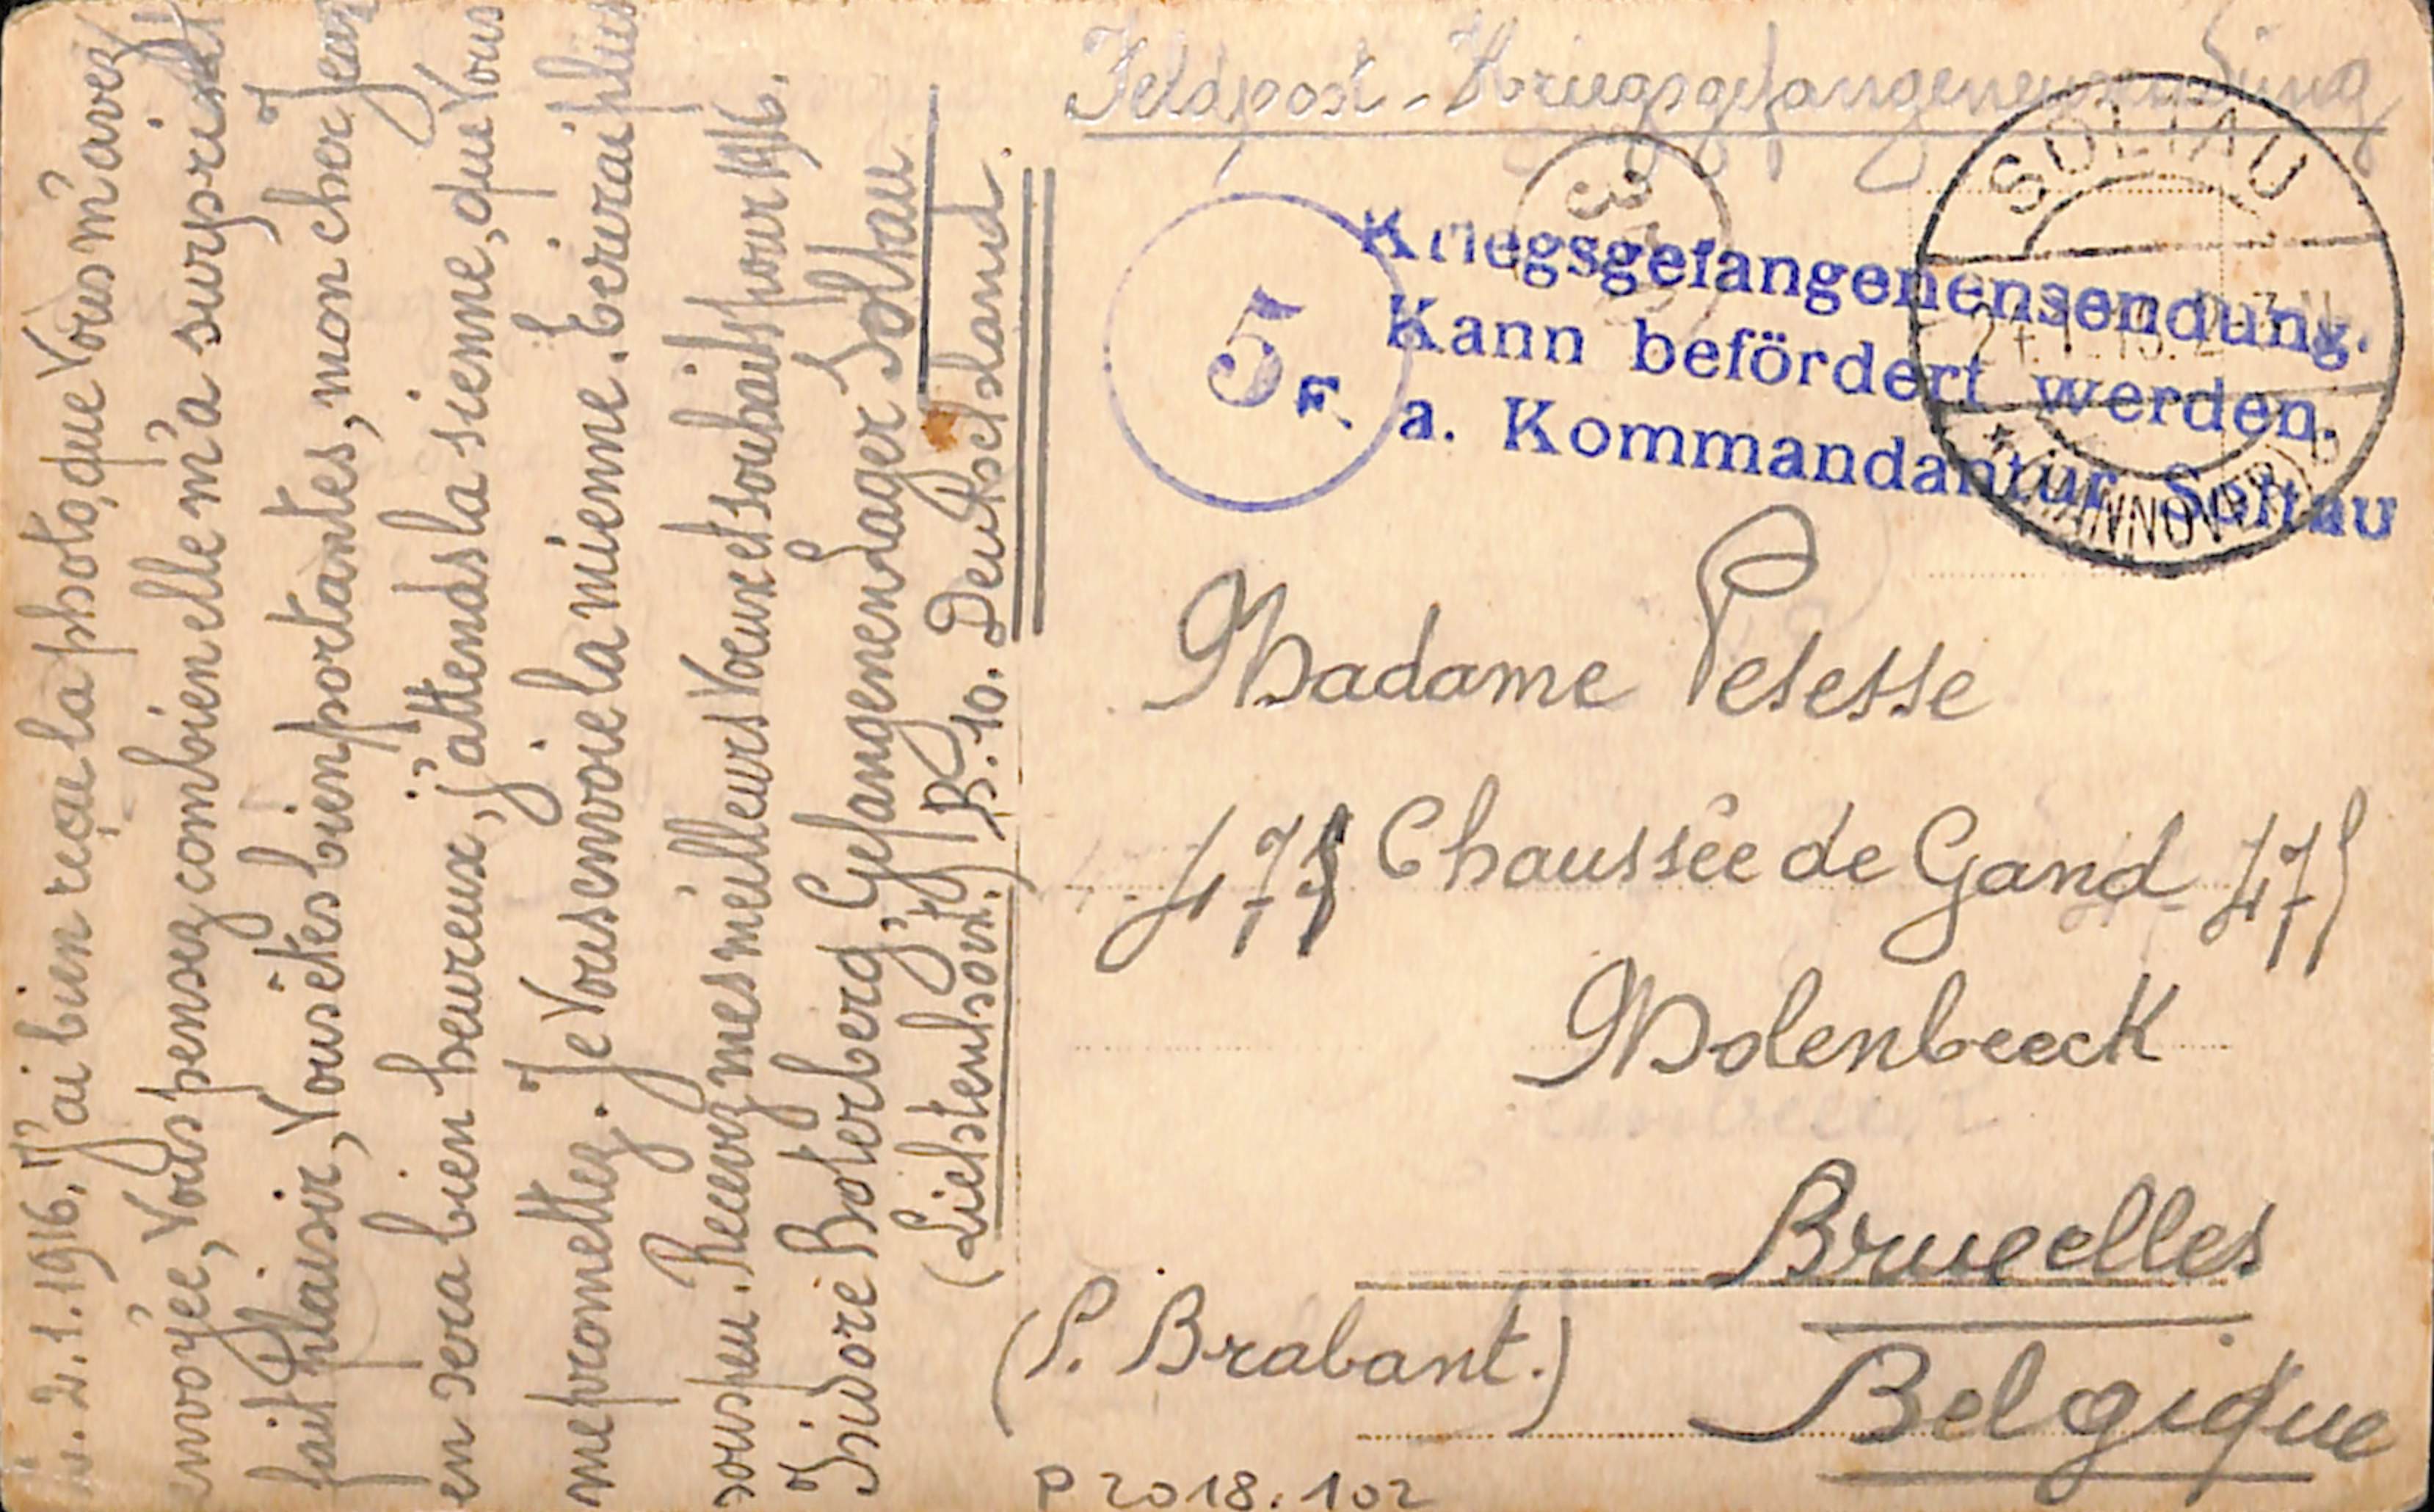 2.1.1916. J'ai bien reçue la photo, que Vous m'avez
envoyée, Vous pensez combien elle m'a surpris et
fait plaisir, Vous êtes bien portantes, mon cher Jean
en sera bien heureux, j'attends la sienne, que Vous
me promettez. Je Vous envoie la mienne. Ecrirai plus
sous peu. Recevez mes meilleurs Voeux et souhaits pour 1916.
Isidore Boterberg, Gefangenenlager Soltau
(Lichtenhorst.) B.10. Deutschland.
Feldpost-Kriegsgefangenensendung
SOLTAU
* (HANNOVER)
5
Kriegsgefangenensendung.
Kann befördert werden.
F. a. Kommandantur Soltau
Madame Pesesse
475 Chaussée de Gand 475
Molenbeeck
Bruxelles
(P. Brabant.)
Belgique
P 2018.102